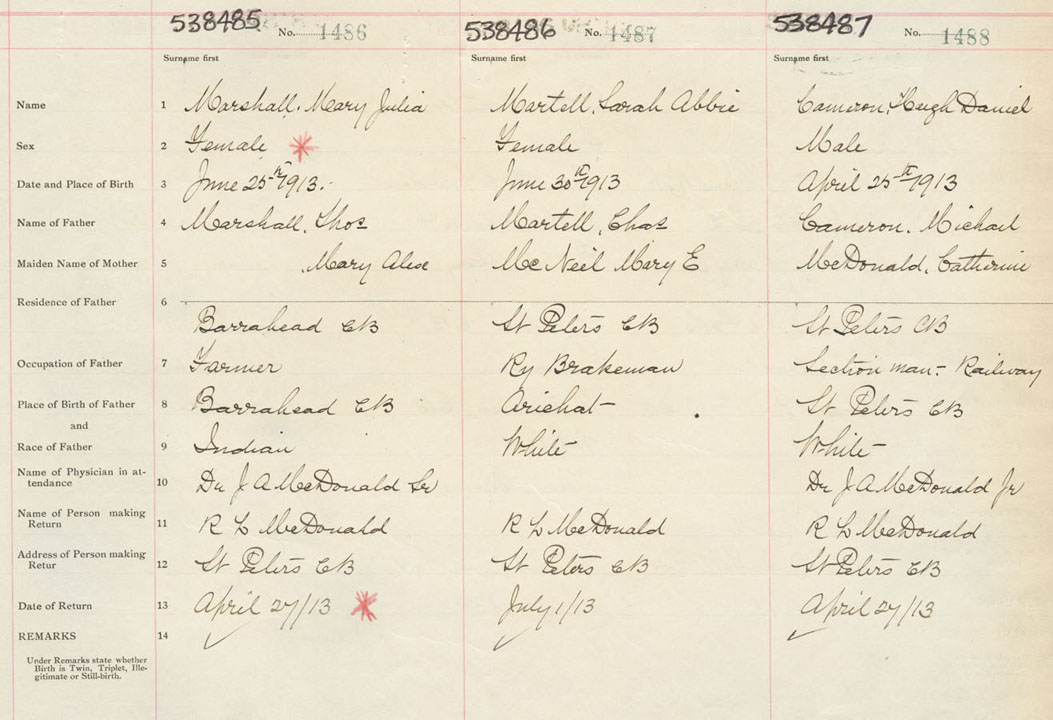 538485 No. 1486 538486 No. 1487 538487 No. 1488
Surname first Surname first Surname first
Name 1 Marshall, Mary Julia Martell, Sarah Abbie Cameron, Hugh Daniel
Sex 2 Female Female Male
Date and Place of Birth 3 June 25th 1913. June 30th 1913 April 25th 1913
Name of Father 4 Marshall, Thos Martell, Chas Cameron, Michael
Maiden Name of Mother 5 , Mary Alese McNeil Mary E McDonald, Catherine
Residence of Father 6
Barrahead CB St Peters CB St Peters CB
Occupation of Father 7 Farmer Ry Brakeman Section man - Railway
Place of Birth of Father 8 Barrahead CB Arichat St Peters CB
and
Race of Father 9 Indian White White
Name of Physician in at-
tendance 10 Dr J A McDonald Sr Dr J A McDonald Jr
Name of Person making
Return 11 R L McDonald R L McDonald R L McDonald
Address of Person making
Retur 12 St Peters CB St Peters CB St Peters CB
Date of Return 13 April 27/13 July 1/13 April 27/13
REMARKS 14
Under Remarks state whether
Birth is Twin, Triplet, Ille-
gitimate or Still-birth.